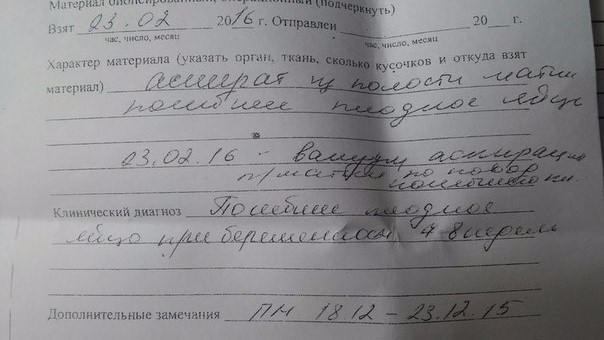 Материал биопсированный, операционный (подчеркнуть)
Взят 23.02 2016 г. Отправлен 20 г.
час, число, месяц час, число, месяц
Характер материала (указать орган, ткань, сколько кусочков и откуда взят
материал) аспират из полости матки
погибшее плодное яйцо
23.02.16 - вакуум аспирация
п/матки по поводу
Клинический диагноз Погибшее плодное
яйцо при беременности 7-8 недель
Дополнительные замечания ПМ 18.12 - 23.12.15